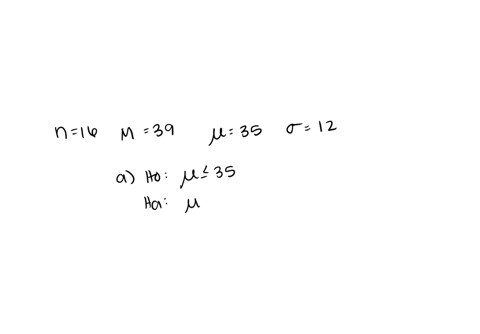 n=16 M =39 μ= 35 σ= 12
a) Ho: μ≤35
Ha: μ